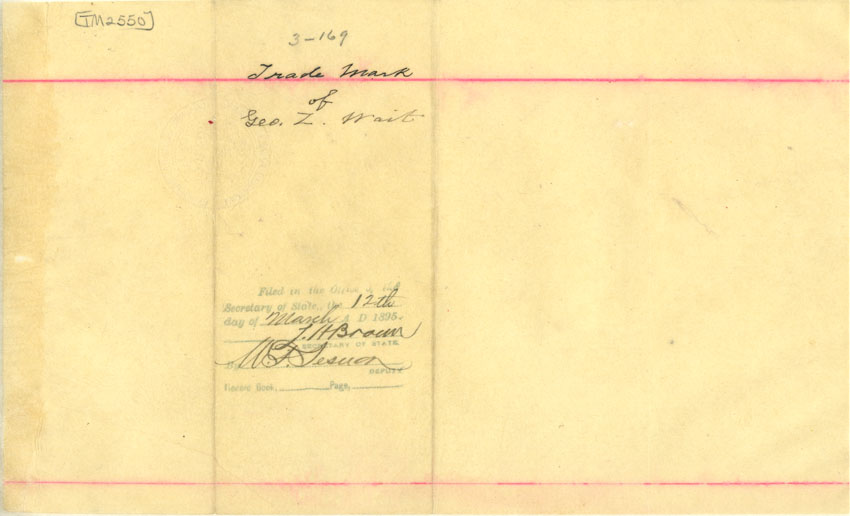 [TM2550]
3-169
Trade Mark
of
Geo. Z. Wait
Filed in the Office of the
Secretary of State, the 12th
day of March A D 1895.
L. H Brown
SECRETARY OF STATE.
By W. F. Sesnon
DEPUTY
Record Book, Page,